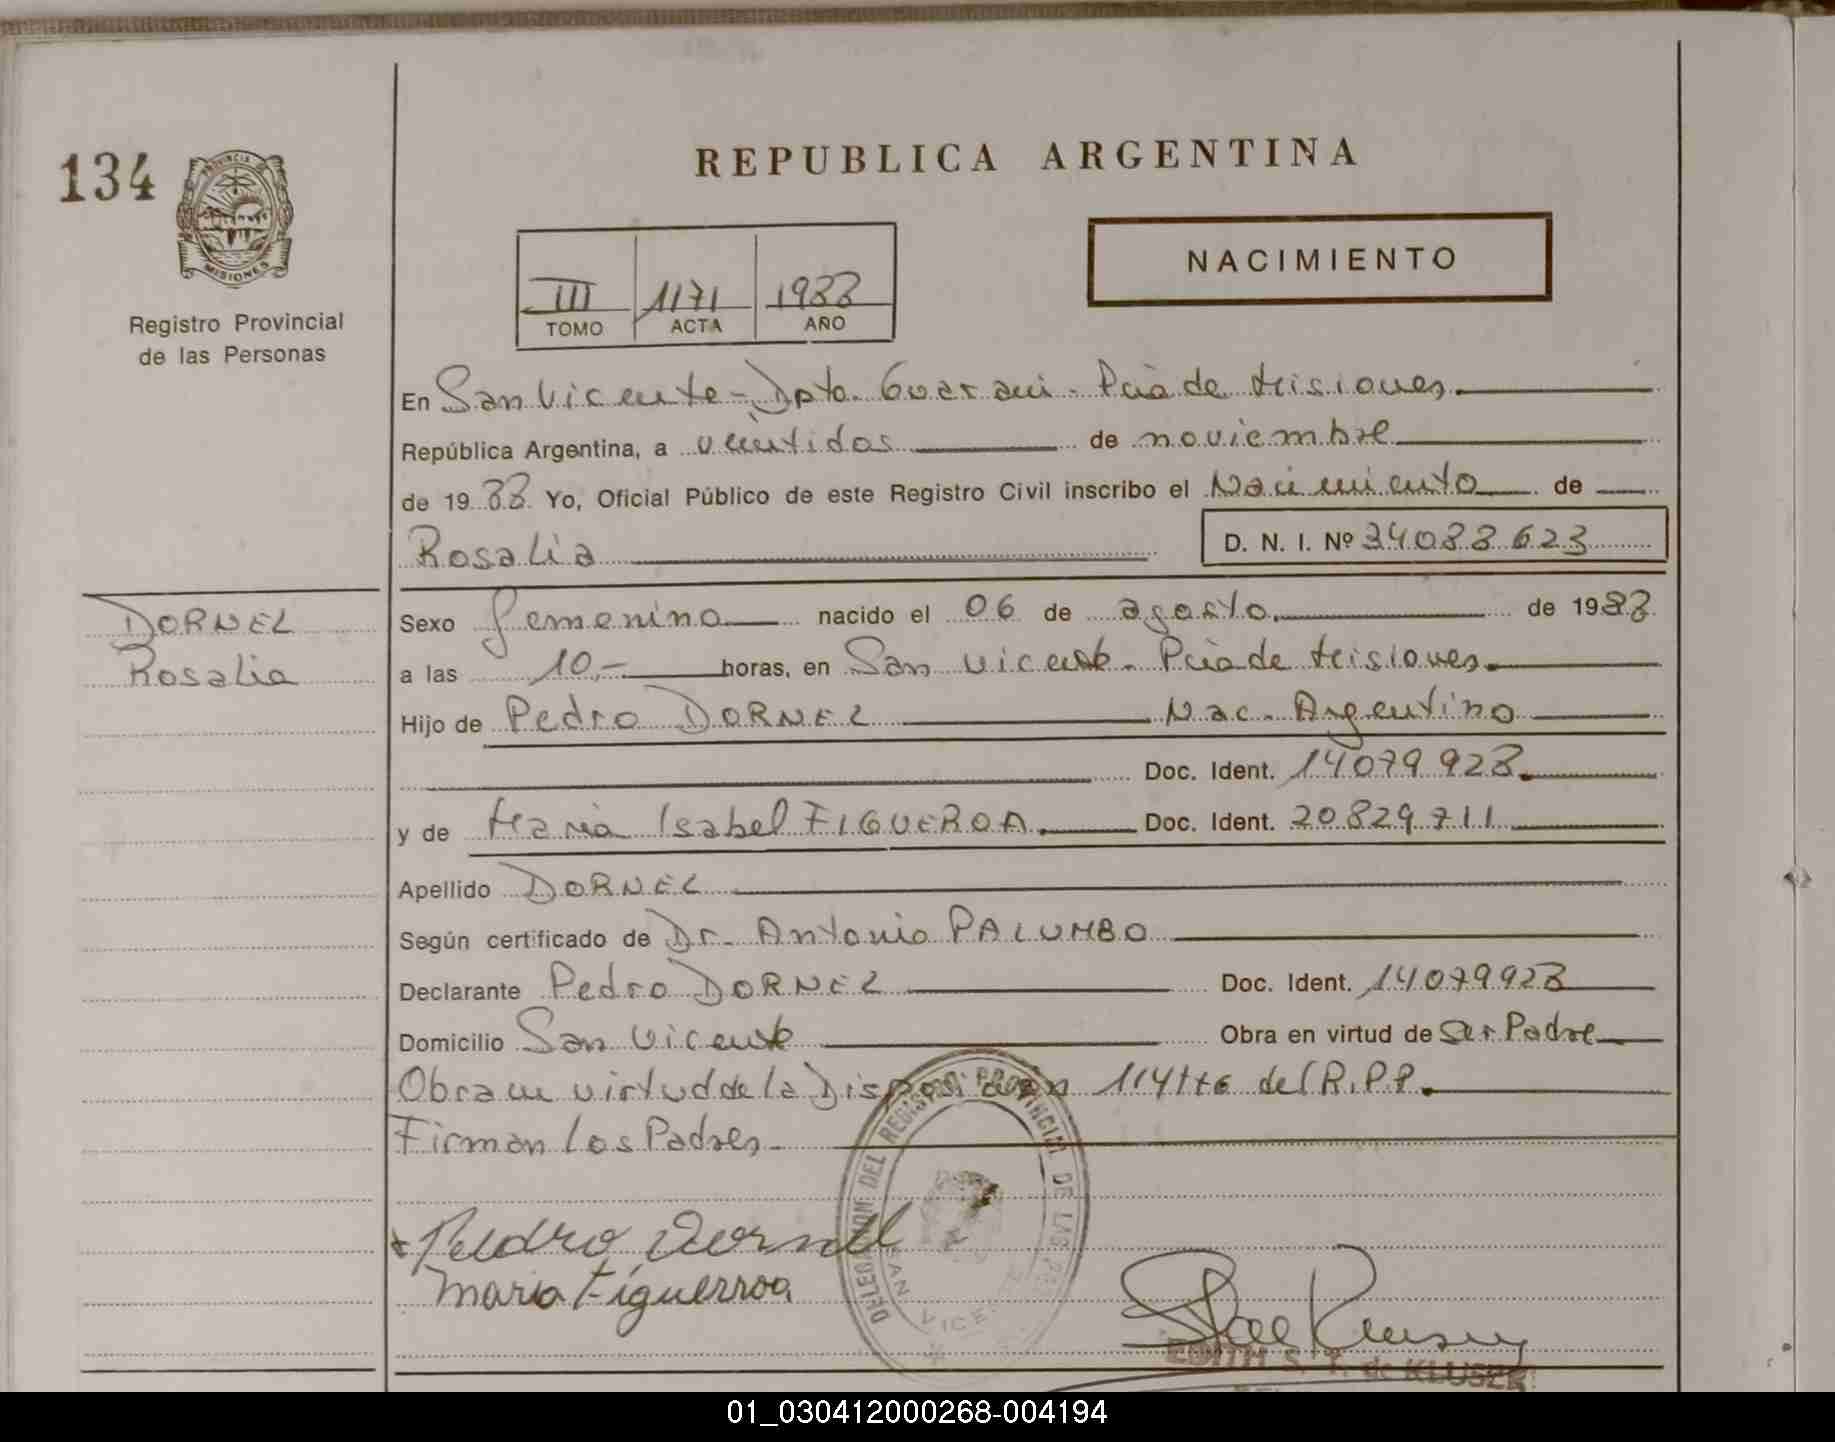 134
PROVINCIA DE
MISIONES
Registro Provincial
de las Personas
REPUBLICA ARGENTINA
NACIMIENTO
III 1171 1988
TOMO ACTA AÑO
En San Vicente - Dpto. Guarani - Pcia de Misiones.
República Argentina, a veintidos de noviembre
de 1988 Yo, Oficial Público de este Registro Civil inscribo el Nacimiento de
Rosalia D. N. I. Nº 34088623
DORNEL
Rosalia
Sexo femenino nacido el 06 de agosto. de 1988
a las 10,- horas, en San Vicente. Pcia de Misiones.
Hijo de Pedro DORNEL Nac. Argentino
Doc. Ident. 14079928.
y de Maria Isabel FIGUEROA. Doc. Ident. 20829711
Apellido DORNEL
Según certificado de Dr. Antonio PALUMBO
Declarante Pedro DORNEL Doc. Ident. 14079928
Domicilio San Vicente Obra en virtud de Ser Padre
Obra en virtud de la Disposición del R.P.P.
Firman los Padres.
Pedro Dornel
Maria Figuerroa
DELEGACION DEL REGISTRO PROVINCIAL DE LAS
SAN VICE
EDITH S. T. de KLUSER
01_030412000268-004194